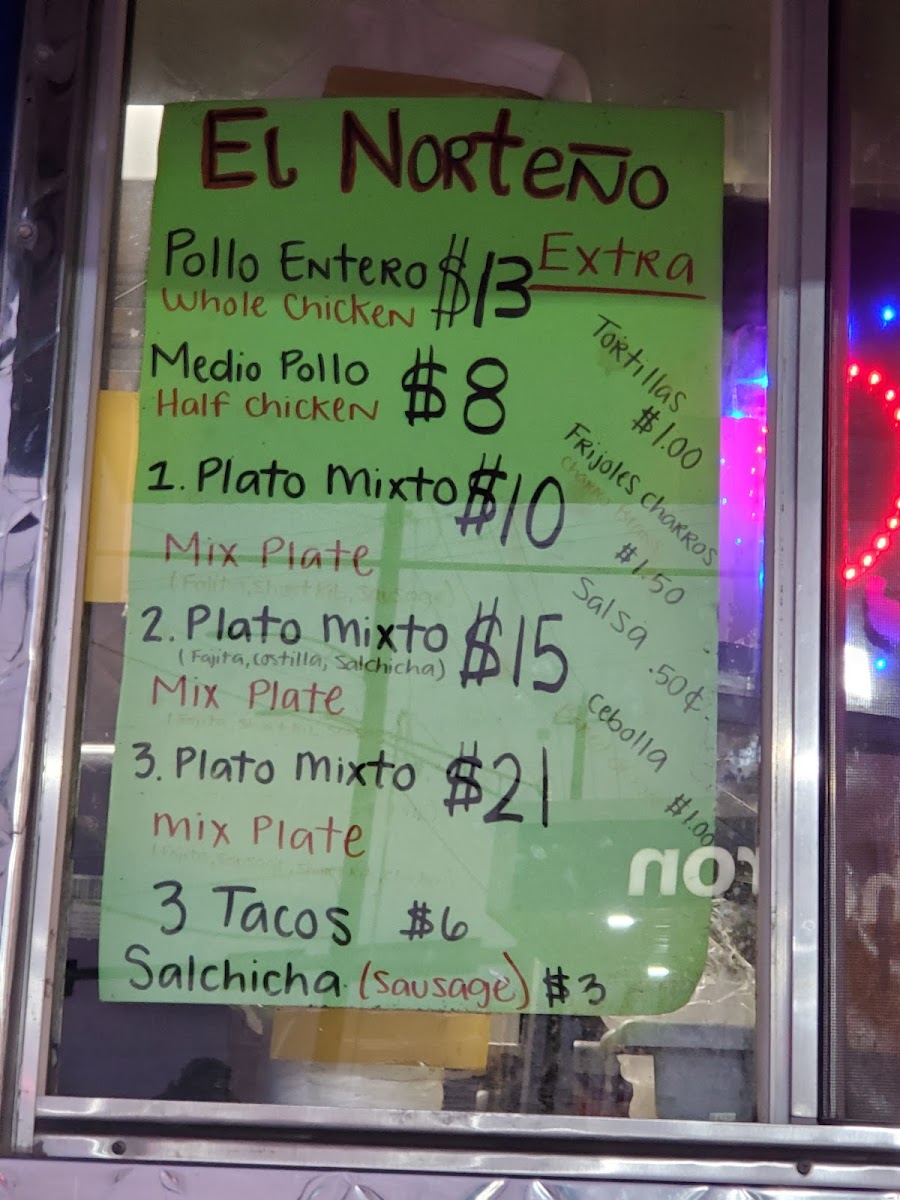 El Norteño
Pollo Entero $13
Whole Chicken
Medio Pollo $8
Half chicken
1. Plato mixto $10
Mix Plate
(Fajita, Short Rib, Sausage)
2. Plato mixto $15
(Fajita, Costilla, Salchicha)
Mix Plate
3. Plato mixto $21
mix Plate
3 Tacos $6
Salchicha (Sausage) $3
Extra
Tortillas
$1.00
Frijoles charros
Charro Beans
$1.50
Salsa .50¢
Cebolla
$1.00